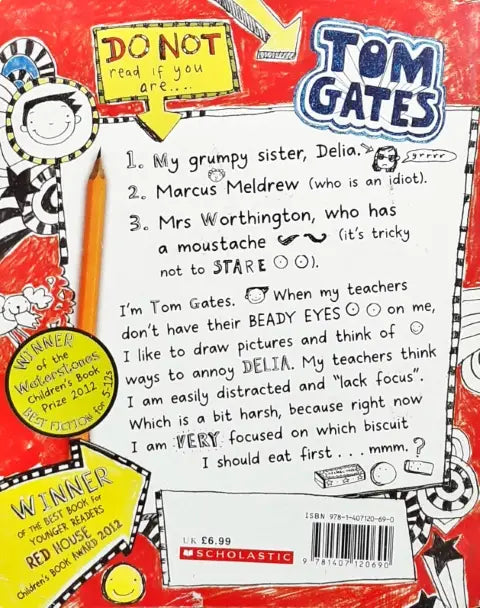 DO NOT
read if you
are....
TOM
GATES
1. My grumpy sister, Delia.
grrrr
2. Marcus Meldrew (who is an idiot).
3. Mrs Worthington, who has
a moustache (it's tricky
not to STARE).
I'm Tom Gates. When my teachers
don't have their BEADY EYES on me,
I like to draw pictures and think of
ways to annoy DELIA. My teachers think
I am easily distracted and "lack focus".
Which is a bit harsh, because right now
I am VERY focused on which biscuit
I should eat first . . . . mmm. ?
WINNER
of the
Waterstones
Children's Book
Prize 2012
BEST FICTION for 5-12s
WINNER
OF THE BEST BOOK for
YOUNGER READERS
RED HOUSE
Children's BOOK AWARD 2012
ISBN 978-1-407120-69-0
UK £6.99
SCHOLASTIC
9 781407 120690